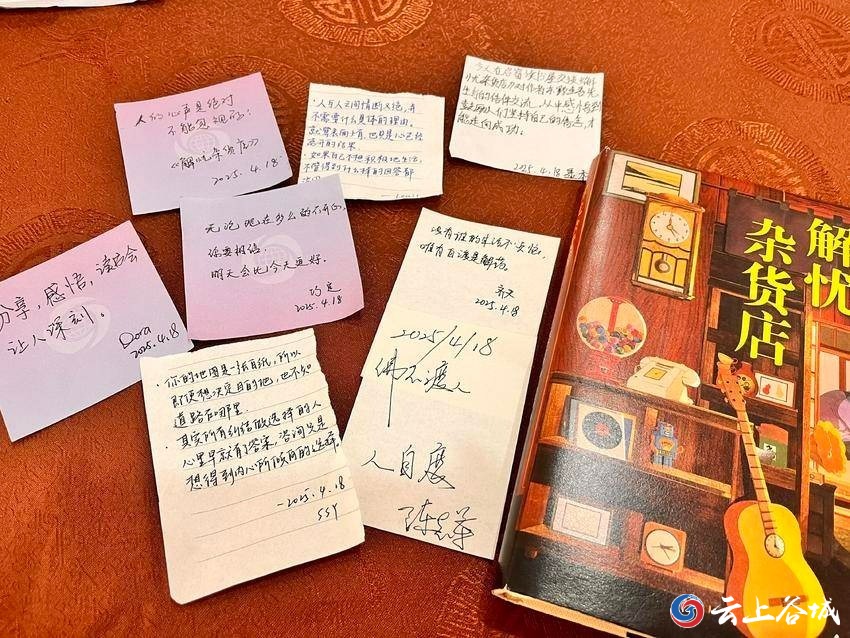 人的心声是绝对
不能忽视的。
《解忧杂货店》
2025.4.18.
·人与人之间情断义绝,并
不需要什么具体的理由。
就算表面上有,也只是心已经
离开的结果
·如果自己不想积极地生活,
不管得到什么样的回答都
生的信体交流,从中感
能走向成功。
2025.4.18
无论现在多么的不开心,
你要相信,
明天会比今天更好。
2025.4.18
分享,感悟,读书会
让人深刻。
Dora
2025.4.18
没有谁的生活不
唯有自渡是解药。
2025.4.18
2025/4/18
佛不渡人
人自度
·你的地图是一张白纸,所以
即使想决定目的地,也不知
道路在哪里
·其实所有纠结做选择的人
心里早就有了答案,咨询只是
想得到内心所倾向的选择。
—2025.4.18
SSY
解忧
杂货店
云上谷城